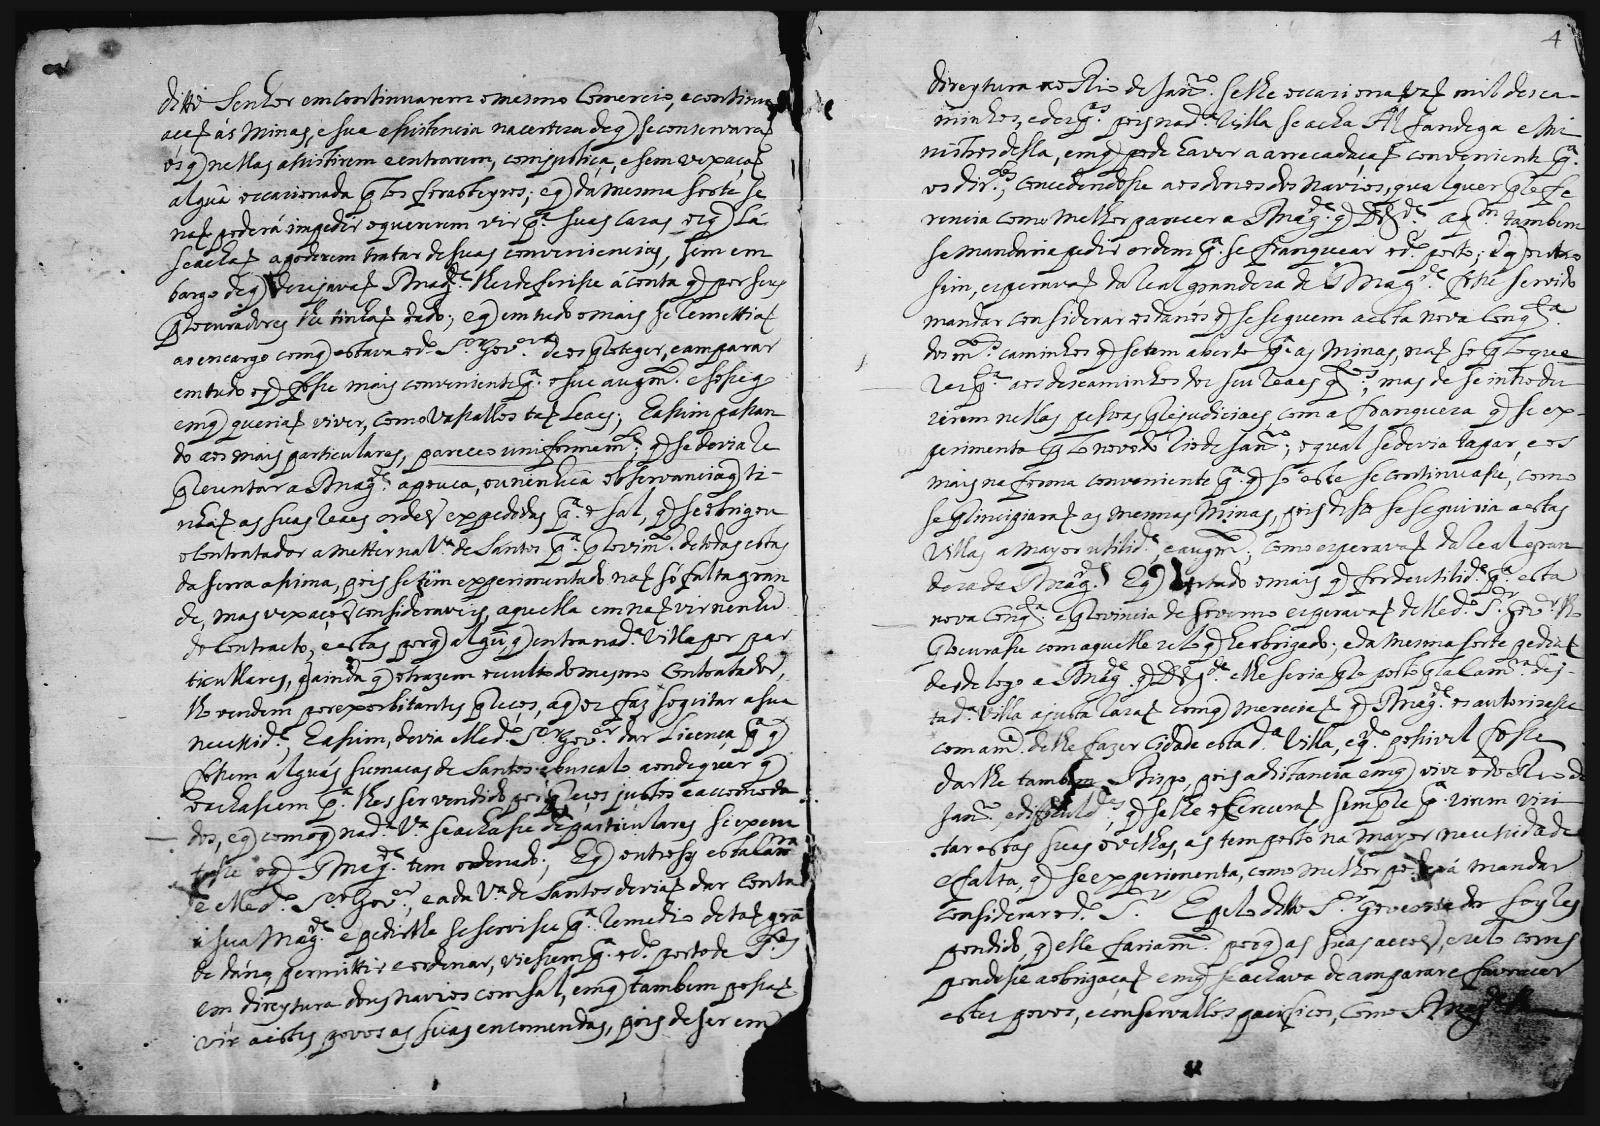 ditto Senhor em continuarem o mesmo Comercio, e continu
ácaõ ás Minas, e sua asistencia na certeza de q̃ se conservaraõ
os q̃ nellas asistirem e entrarem, com justiça, e sem vexaçaõ
algũa occasionada p.los forasteyros; e q̃ da mesma sorte se
naõ poderá impedir o quererem vir p.ª suas casas os q̃ lá
se achaõ a poderem tratar de suas conveniencias, sem em
bargo de q̃ desejavaõ S Mag.de lhes deferisse á conta q̃ por seus
Procuradores lhe tinhaõ dado; e q̃ em tudo o mais se remettiaõ
ao encargo com q̃ estava o d.º S.or Gov.or de os proteger, e amparar
em tudo o q̃ fosse mais conveniente p.ª o seu augm.to e sosiego
em q̃ queriaõ viver, como Vasallos taõ Leaes; E asim pasan
do aos mais particulares, pareceo uniformem.te q̃ se devia re
prezentar a S Mag.de a pouca, ou nenhũa observancia q̃ ti
nhaõ as suas reaes ordés expedidas p.ª o sal, q̃ se obrigou
o Contratador a metter na V.ª de Santos p.ª provim.to de todas estas
da serra asima, pois se tem experimentado naõ só falta gran
de, mas vexações consideraveis, aquella em naõ vir nenhũ
do Contracto, e estas porq̃ algũ, q̃ entra na d.ª Villa por par
ticullares, q̃ ainda q̃ o trazem occulto do mesmo Contratador,
lho vendem por exorbitantes preços, a q̃ os faz sogeitar a sua
necesid.e, E asim, devia elle d.º S.or Gov.or dar Licença p.ª q̃
fosem algũas sumacas de Santos a buscalo aonde quer q̃
o achasem p.ª lhes ser vendido por preços justos e accomoda
dos, e q̃ como q̃ na d.ª V.ª se achase de particulares se execu
tase o q̃ S Mag.de tem ordenado; E q̃ outrosy esta Cam.ra
e elle d.º S.or Gov.or, e a da V.ª de Santos deviaõ dar Conta
a sua Mag.de e pedirlhe se servise p.ª remedio de taõ gran
de dano permittir e ordenar, viesem p.ª o d.º porto de S.tos
em direytura dous navios com sal, em q̃ tambem posaõ
vir a estes povos as suas encomendas, pois de ser em
4
direytura ao Rio de Jan.ro se lhe occasionavaõ mil desca-
minhos, e despẽzas pois na d.ª Villa se acha Alfandega e Mi
nistros della, em q̃ pode haver a arrecadaçaõ conveniente p.ª
os dir.tos, concedendose aos donos dos navios, qualquer prefe
rencia como melhor parecer a S Mag.de q̃ D.s g.de a q.m tambem
se mandaria pedir ordem p.ª se franquear o d.º porto; E q̃ outro
sim, esperavaõ da real grandeza de S Mag.de fose servido
mandar considerar os danos q̃ se seguem a esta nova Conq.ta
dos m.tos caminhos q̃ se tem aberto p.ª as Minas, naõ só p.lo que
res p.ta aos descaminhos dos seus reaes q.tos, mas de se introdu
zirem nellas pesoas prejudiciaes, com a franqueza q̃ se ex-
perimenta p.lo novo do Rio de Jan.ro, o qual se devia tapar, e os
mais na forma conveniente p.ª q̃ só este se continuase, como
se principiaraõ as mesmas Minas, pois disto se seguiria a estas
Villas a mayor utilid.e, e augm.to, como esperavaõ da real gran
deza de S Mag.de E q̃ em tudo o mais q̃ for de utilid.e p.ª esta
nova Conq.ta e Provincia de Governo esperavaõ delle d.º S.or Gov.or lho
procurase com aquelle zelo q̃ he obrigado; e da mesma sorte pediaõ
desde logo a S Mag.de q̃ D.s g.de lhe seria preposto p.la Cam.ra des-
ta d.ª Villa a justa razaõ com q̃ mereciaõ q̃ S Mag.de os autorizase
com a m.ce de lhe fazer Cidade esta d.ª Villa, e q.do posivel fose
darlhe tambem Bispo, pois a distancia em q̃ vive o do Rio de
Jan.ro, e dificuld.es, q̃ se lhe offerecem sempre p.ª virem vizi
tar estas suas ovelhas, as tem posto na mayor necesidade
e falta, q̃ se experimenta, como melhor poderá mandar
considerar o d.º S.or E pelo ditto S.or Governador foy res
pondido, q̃ elle faria m.to porq̃ as suas accoés, e zelo corres
pondese a obrigaçaõ em q̃ se achava de amparar e favorecer
estes povos, e conservallos pacificos, como S Mag.de lhe